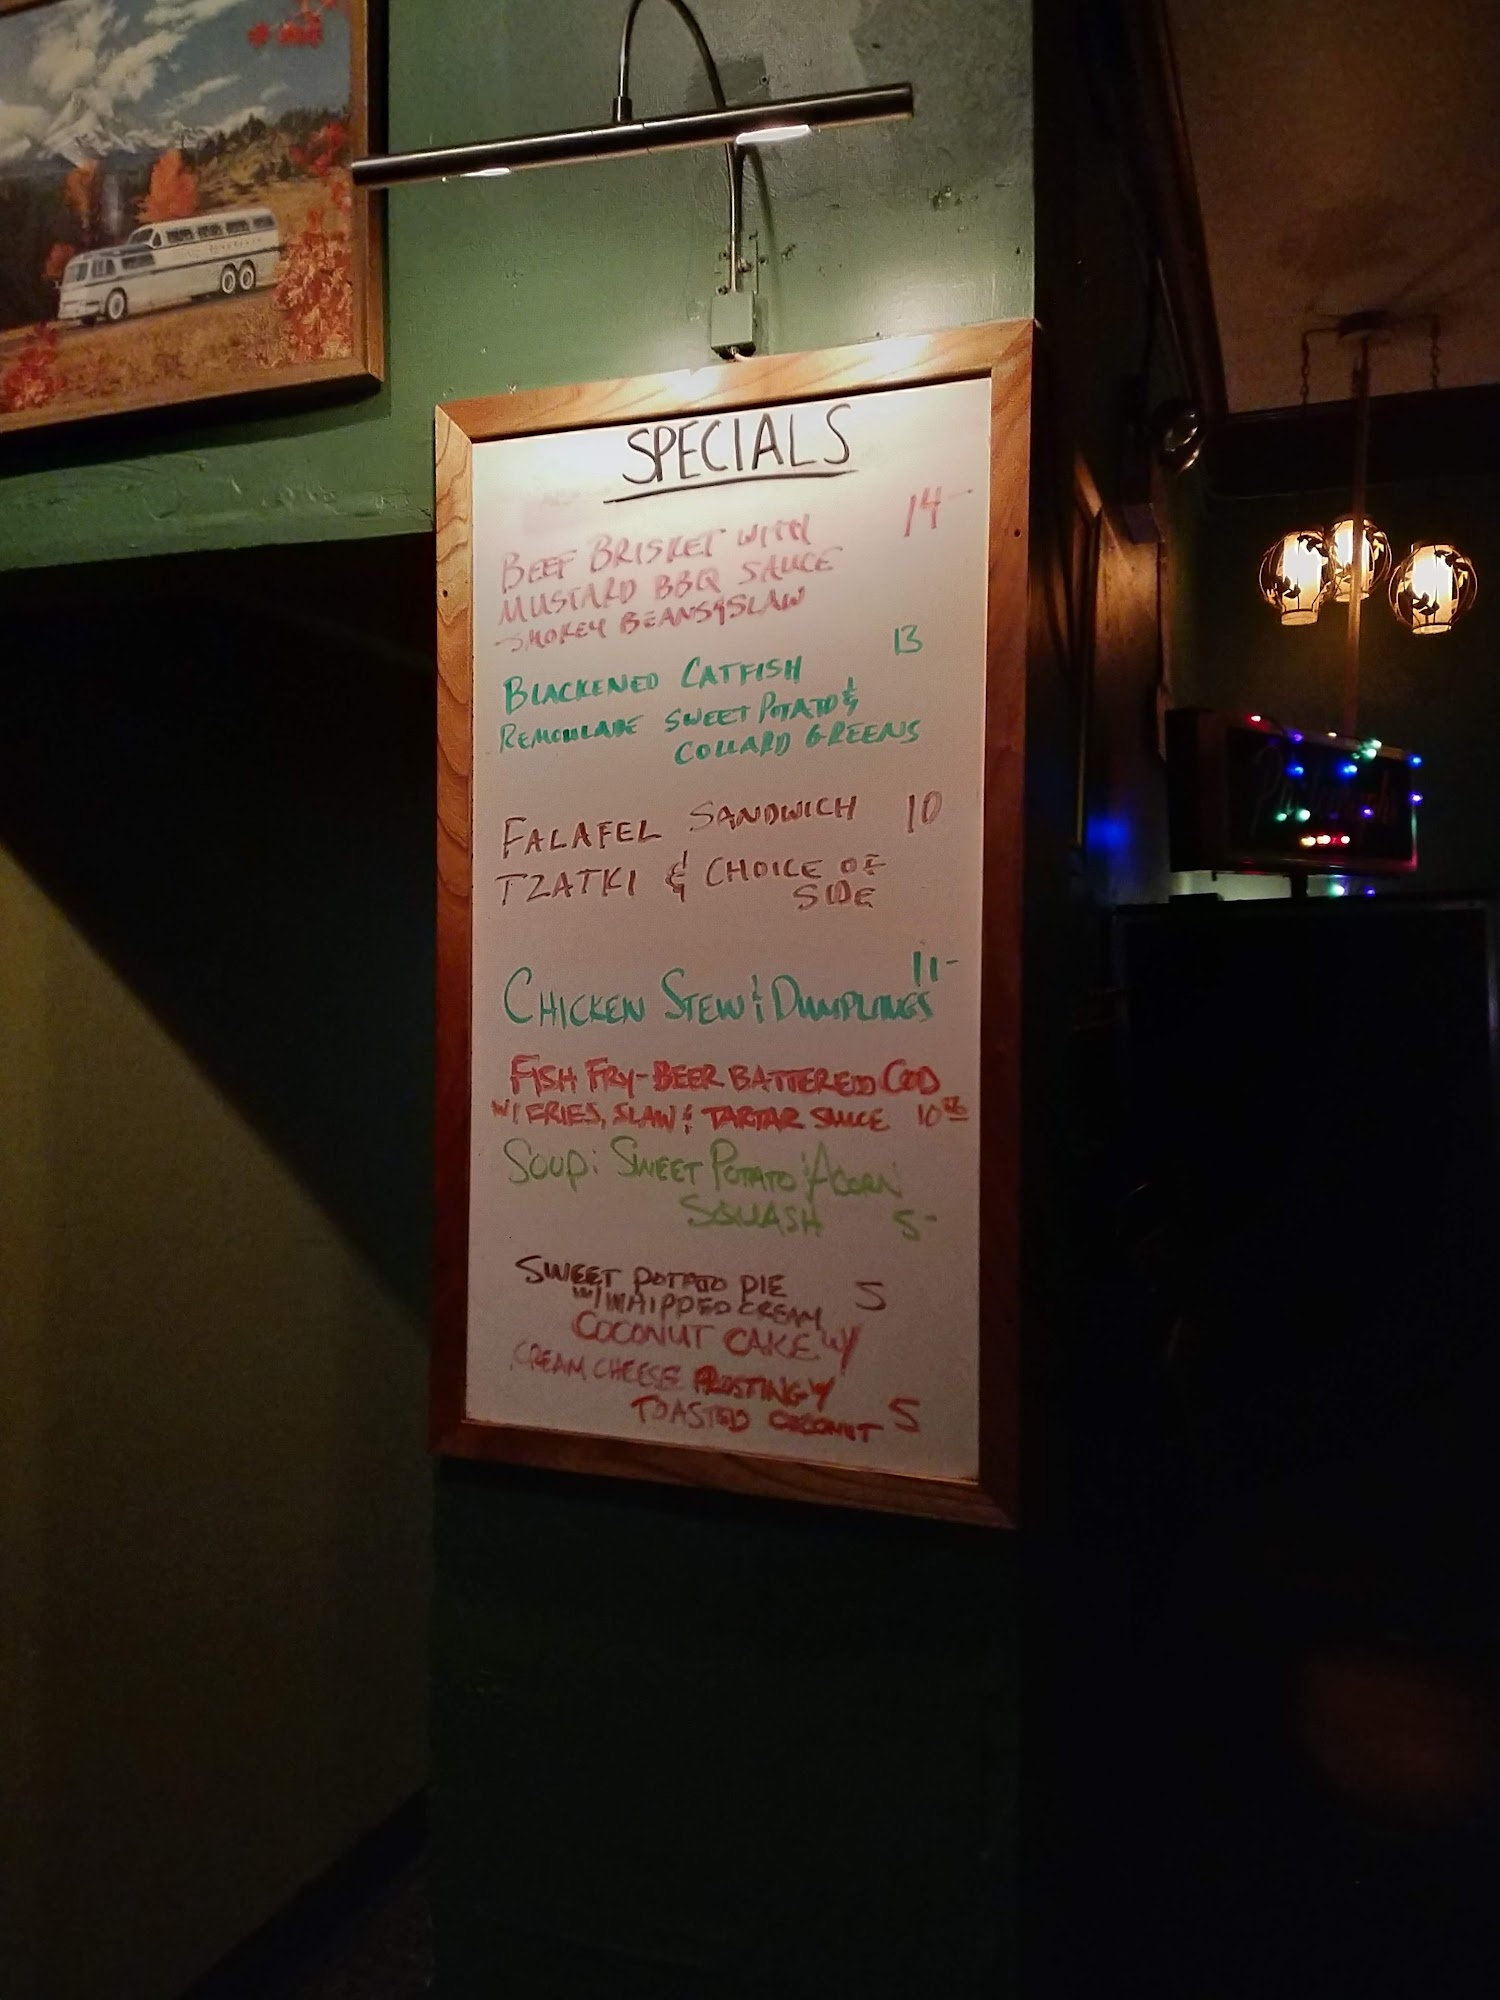 SPECIALS
BEEF BRISKET WITH 14-
MUSTARD BBQ SAUCE
SMOKEY BEANS & SLAW
BLACKENED CATFISH 13
REMOULADE SWEET POTATO &
COLLARD GREENS
FALAFEL SANDWICH 10
TZATKI & CHOICE OF
SIDE
11-
CHICKEN STEW & DUMPLINGS
FISH FRY-BEER BATTERED COD
W/ FRIES, SLAW & TARTAR SAUCE 10
SOUP: SWEET POTATO & ACORN
SQUASH 5-
SWEET POTATO PIE 5
W/ WHIPPED CREAM
COCONUT CAKE W/
CREAM CHEESE FROSTING W/
TOASTED COCONUT 5